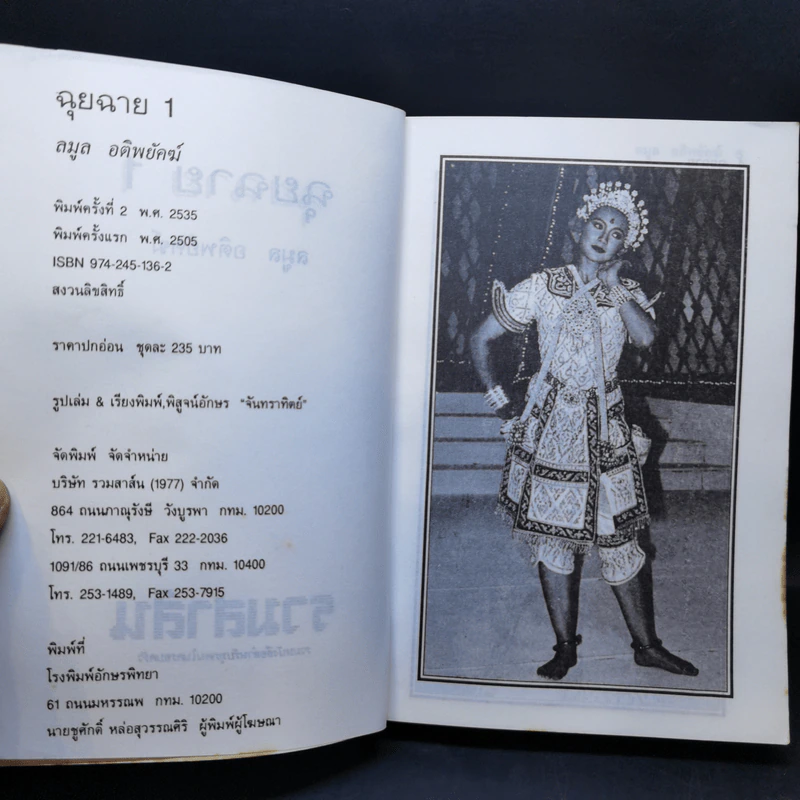 ฉุยฉาย 1
ลมูล อติพยัคฆ์
พิมพ์ครั้งที่ 2 พ.ศ. 2535
พิมพ์ครั้งแรก พ.ศ. 2505
ISBN 974-245-136-2
สงวนลิขสิทธิ์
ราคาปกอ่อน ชุดละ 235 บาท
รูปเล่ม & เรียงพิมพ์,พิสูจน์อักษร "จันทราทิตย์"
จัดพิมพ์ จัดจำหน่าย
บริษัท รวมสาส์น (1977) จำกัด
864 ถนนภาณุรังษี วังบูรพา กทม. 10200
โทร. 221-6483, Fax 222-2036
1091/86 ถนนเพชรบุรี 33 กทม. 10400
โทร. 253-1489, Fax 253-7915
พิมพ์ที่
โรงพิมพ์อักษรพิทยา
61 ถนนมหรรณพ กทม. 10200
นายชูศักดิ์ หล่อสุวรรณศิริ ผู้พิมพ์ผู้โฆษณา
ฉุยฉาย 1
ลมูล อติพยัคฆ์
รวมสาส์น